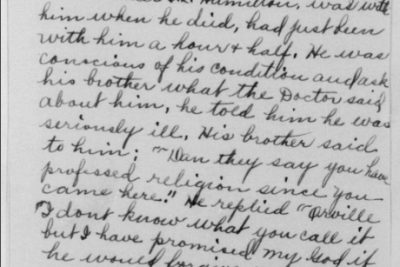 Hamilton, was with
him when he died, had just been
with him a hour & half. He was
conscious of his condition and ask
his brother what the Doctor said
about him, he told him he was
seriously ill. His brother said
to him; "Dan they say you have
professed religion since you
came here." He replied "Orville
I dont know what you call it
but I have promised my God if
he would